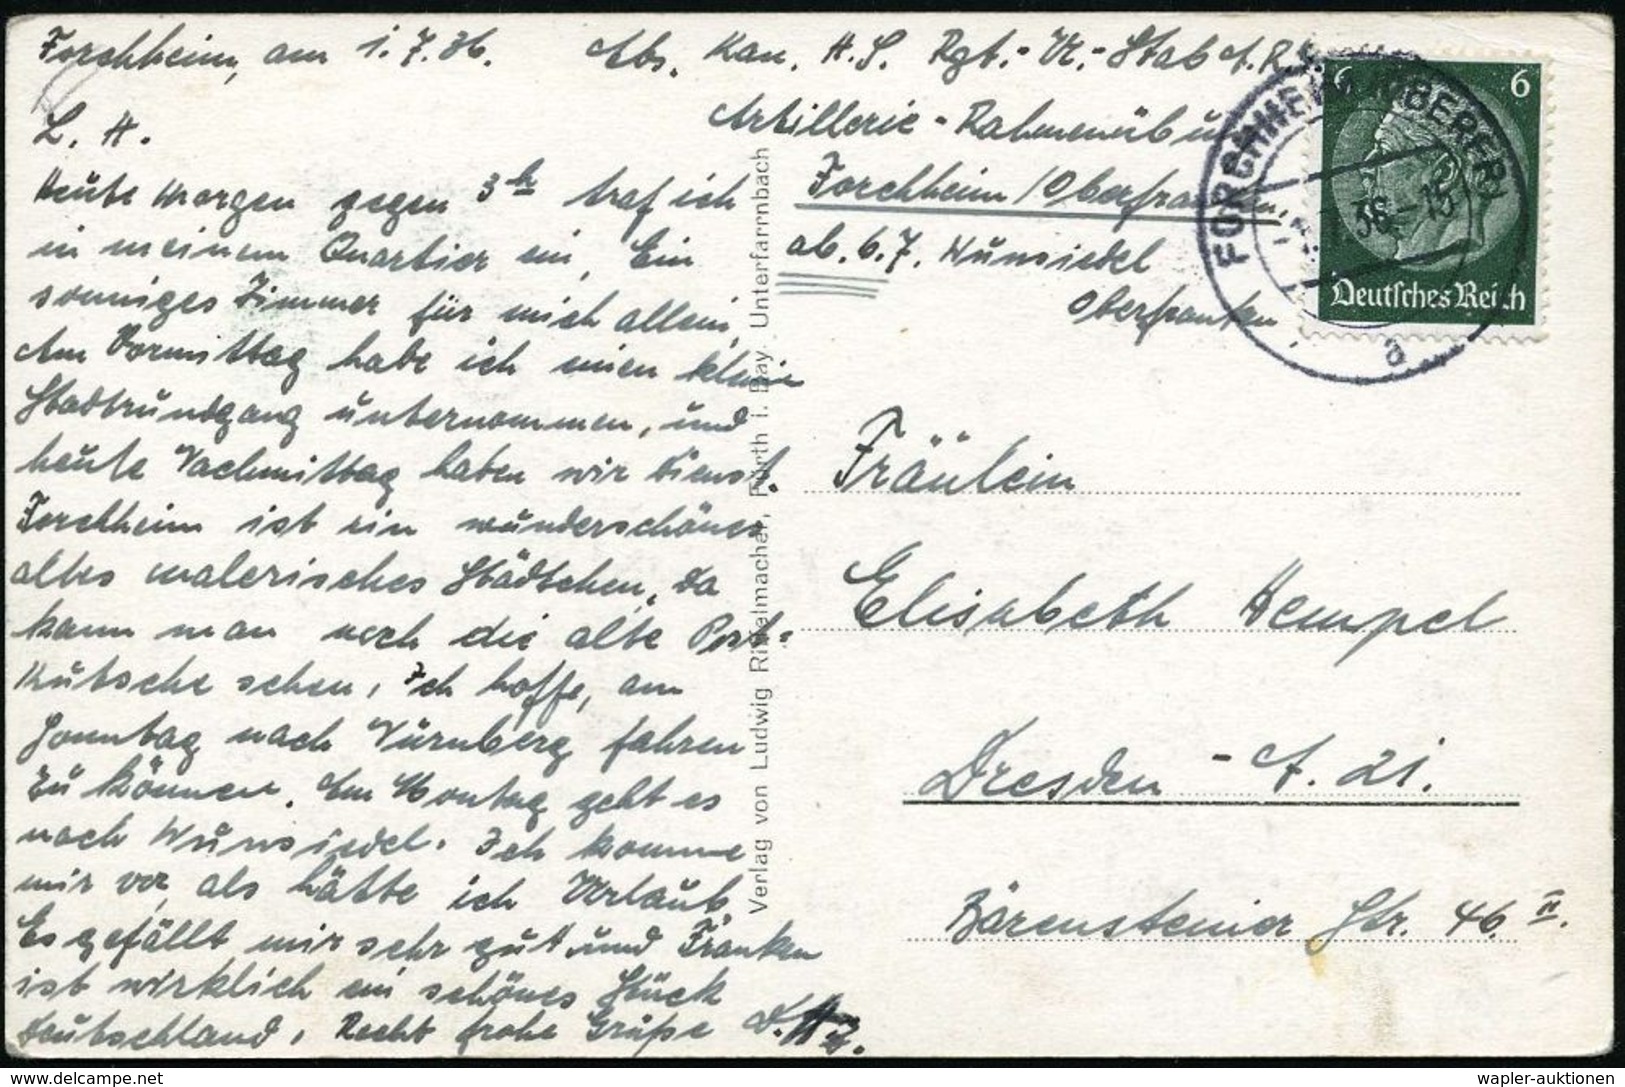 Forchheim, am 1.7.36.
Abs. Kan. H. S. Rgt.-Vr.-Stab d. R. 5.
Artillerie-Rahmenübu
Forchheim/Oberfranken.
ab. 6.7. Wunsiedel
Oberfranken
L. H.
Heute Morgen gegen 3h traf ich
in meinem Quartier ein, Ein
sonniges Zimmer für mich allein,
Am Vormittag habe ich einen klein
Stadtrundgang unternommen, und
heute Nachmittag haben wir Dienst.
Forchheim ist ein wunderschönes
altes malerisches Städtchen, da
kann man noch die alte Post=
kutsche sehen, Ich hoffe, am
Sonntag nach Nürnberg fahren
zu können. Am Montag geht es
nach Wunsiedel. Ich komme
mir vor, als hätte ich Urlaub.
Es gefällt mir sehr gut und Franken
ist wirklich ein schönes Stück
Deutschland, Recht frohe Grüße D. H.
Verlag von Ludwig Riffelmacher, Fürth i. Bay. Unterfarrnbach
FORCHHEIM (OBERFR)
36-15
a
6 6
Deutsches Reich
Fräulein
Elisabeth Hempel
Dresden - A. 21.
Bärensteiner Str. 46 II.
© www.delcampe.net
wapler-auktionen